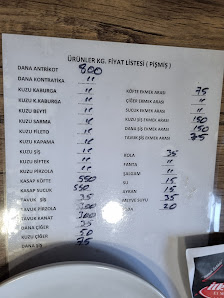 ÜRÜNLER KG. FİYAT LİSTESİ ( PİŞMİŞ )
DANA ANTRİKOT 800
DANA KONTRATİKA "
KUZU KABURGA "
KUZU K.KABURGA "
KUZU BEYTİ "
KUZU SARMA "
KUZU FİLETO "
KUZU KAPAMA "
KUZU ŞİŞ "
KUZU BİFTEK "
KUZU PİRZOLA "
KASAP KÖFTE 550
KASAP SUCUK 550
TAVUK ŞİŞ
TAVUK PİRZOLA 300
TAVUK KANAT 300
DANA CİĞER
KUZU CİĞER 50
DANA ŞİŞ 75
KÖFTE EKMEK ARASI 75
CİĞER EKMEK ARASI "
SUCUK EKMEK ARASI "
KUZU ŞİŞ EKMEK ARASI 150
DANA ŞİŞ EKMEK ARASI 150
EKMEK ARASI "
KOLA 35
FANTA "
ŞALGAM "
SU "
AYRAN 15
MEYVE SUYU 35
20